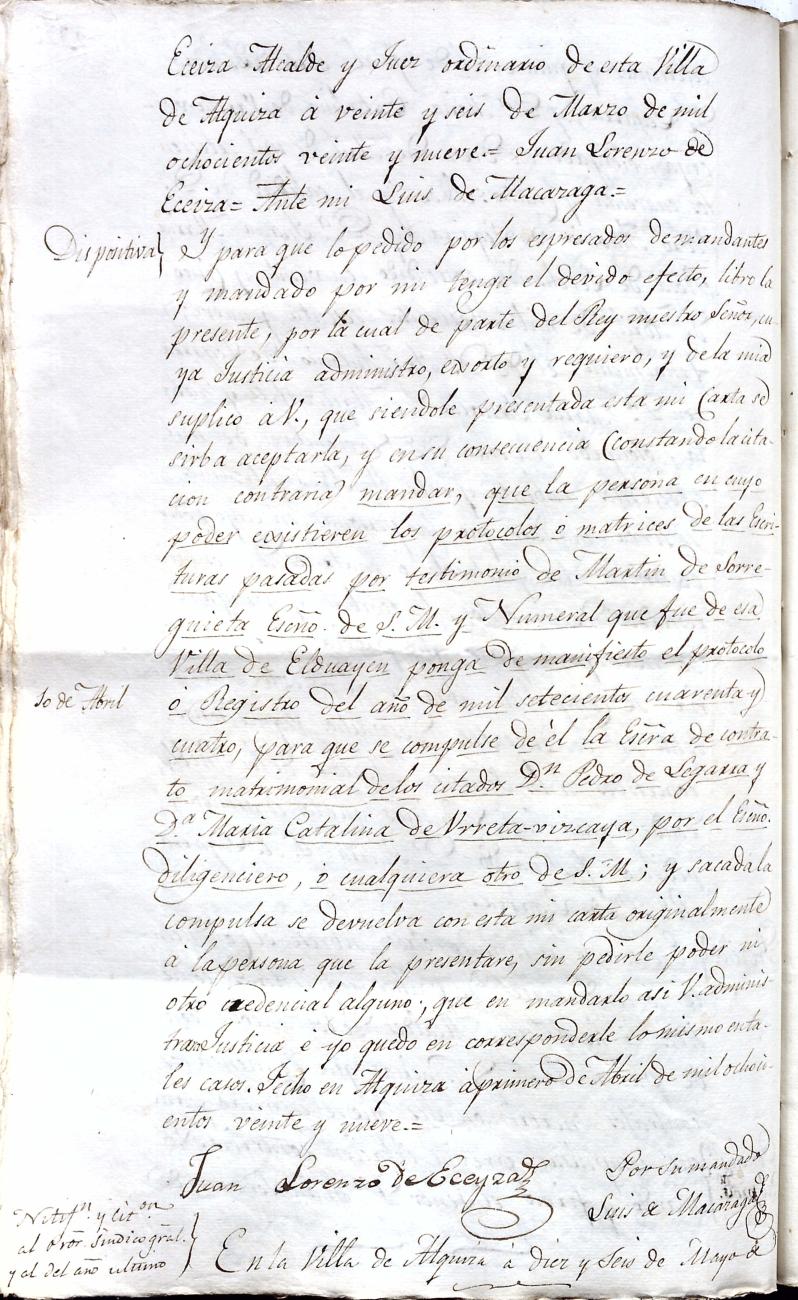 Eceiza Alcalde y Juez ordinario de esta Villa
de Alquiza á veinte y seis de Marzo de mil
ochocientos veinte y nueve.= Juan Lorenzo de
Eceiza= Ante mi Luis de Macazaga.=
Dispositiva} Y para que lo pedido por los espresados demandantes
y mandado por mi tenga el devido efecto, libro la
presente, por la cual de parte del Rey nuestro Señor, cu-
ya Justicia administro, exorto y requiero, y de la mia
suplico á V., que siendole presentada esta mi Carta se
sirba aceptarla, y en su consecuencia (constando la cita-
cion contraria) mandar, que la persona en cuyo
poder existieren los protocolos ó matrices de las Escri-
turas pasadas por testimonio de Martin de Sorre-
guieta Esñō. de S. M. y Numeral que fue de esa
Villa de Elduayen ponga de manifiesto el protocolo
10 de Abril
ó Registro del año de mil setecientos cuarenta y
cuatro, para que se compulse de él la Esc̃ra de contra-
to matrimonial delos citados D.n Pedro de Legarra y
D.a Maria Catalina de Vrreta-vizcaya, por el Esñō.
diligenciero, ó cualquiera otro de S. M; y sacada la
compulsa se devuelva con esta mi carta originalmente
á la persona que la presentare, sin pedirle poder ni
otro credencial alguno; que en mandarlo asi V. adminis-
trará Justicia é yo quedo en corresponderle lo mismo en ta-
les casos. Fecho en Alquiza á primero de Abril de mil ochoci-
entos veinte y nueve.=
Juan Lorenzo de Eceyza
Por su mandado
Luis de Macazaga
Notif.n y Cit.on
al Pror. Sindico gral.
y al del año ultimo}
En la Villa de Alquiza á diez y Seis de Mayo de